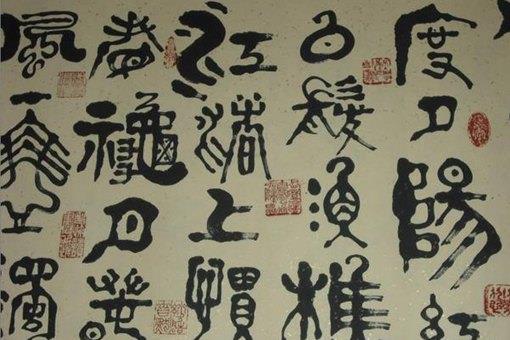 度夕陽紅
白髮漁樵
江渚上慣
看龝月春
風一壺濁